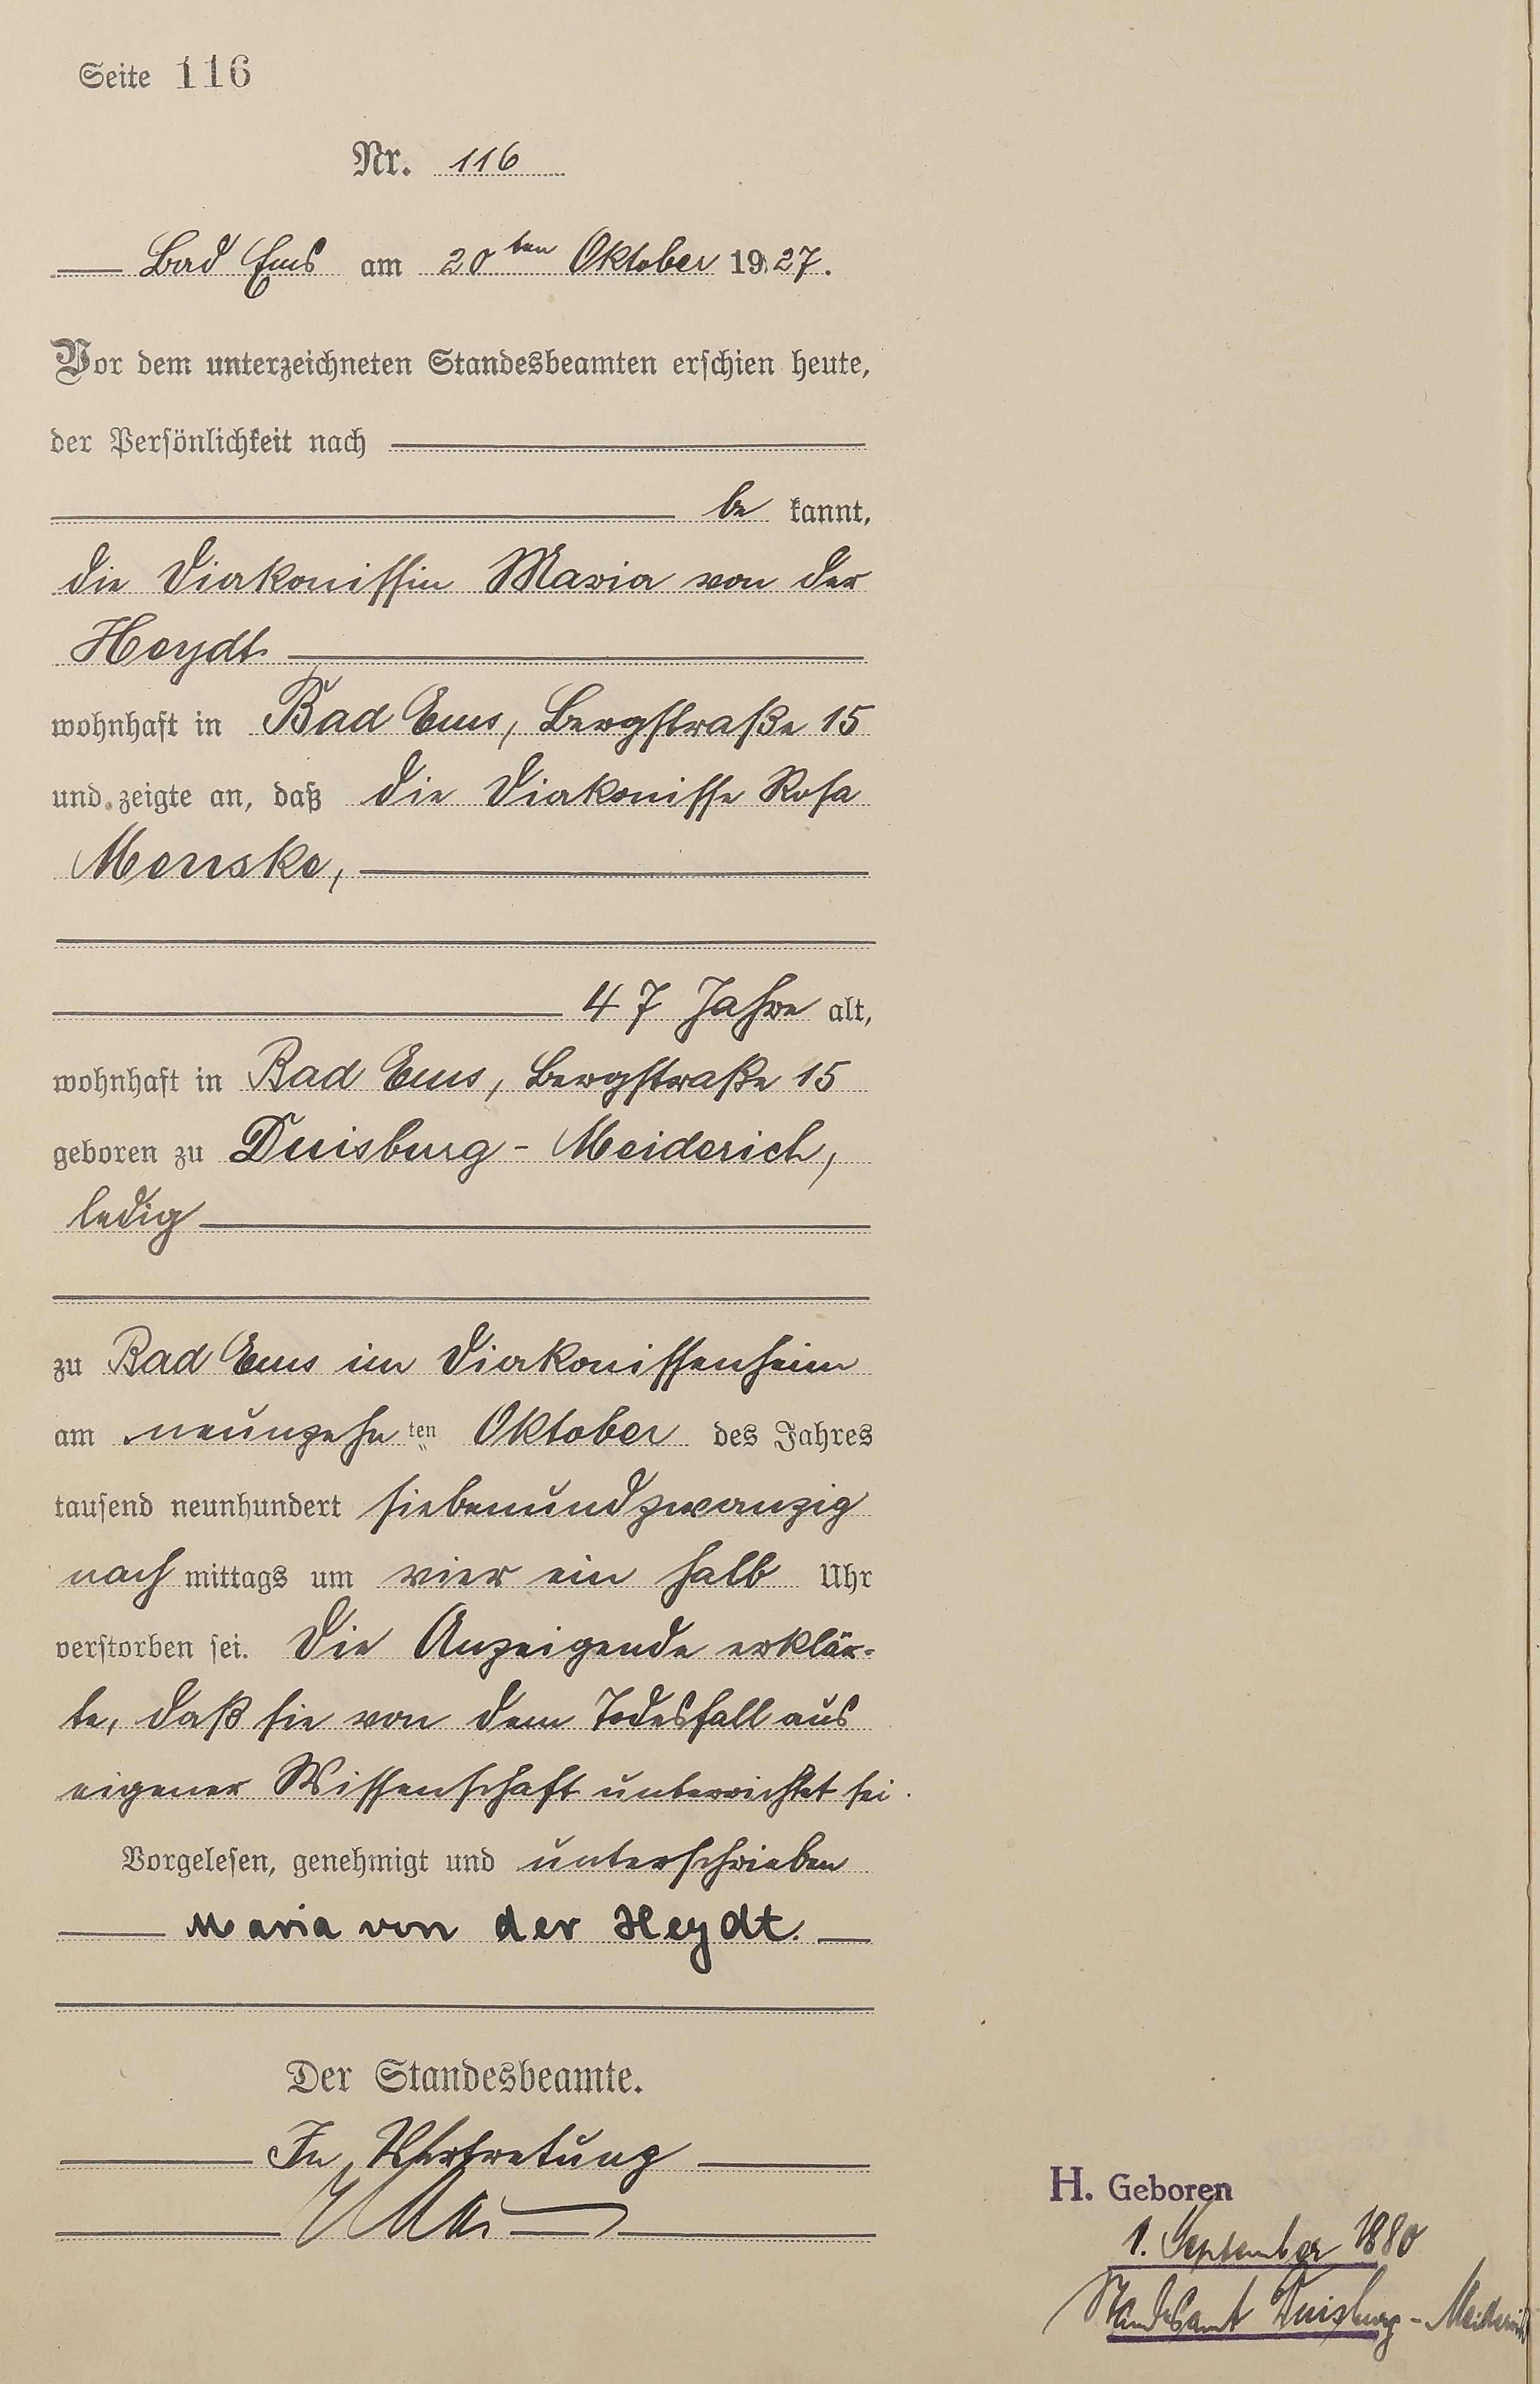 Seite 116
Nr. 116
Bad Ems am 20ten Oktober 1927.
Vor dem unterzeichneten Standesbeamten erschien heute,
der Persönlichkeit nach
be kannt,
die Diakonissin Maria von der
Heydt
wohnhaft in Bad Ems, Bergstraße 15
und zeigte an, daß die Diakonisse Rosa
Menske,
47 Jahre alt,
wohnhaft in Bad Ems, Bergstraße 15
geboren zu Duisburg-Meiderich,
ledig
zu Bad Ems im Diakonissenheim
am neunzehnten Oktober des Jahres
tausend neunhundert siebenundzwanzig
nach mittags um vier ein halb Uhr
verstorben sei. Die Anzeigende erklär-
te, daß sie von dem Todesfall aus
eigener Wissenschaft unterrichtet sei.
Vorgelesen, genehmigt und unterschrieben
Maria von der Heydt.
Der Standesbeamte.
In Vertretung
H. Geboren
1. September 1880
Standesamt Duisburg-Meiderich